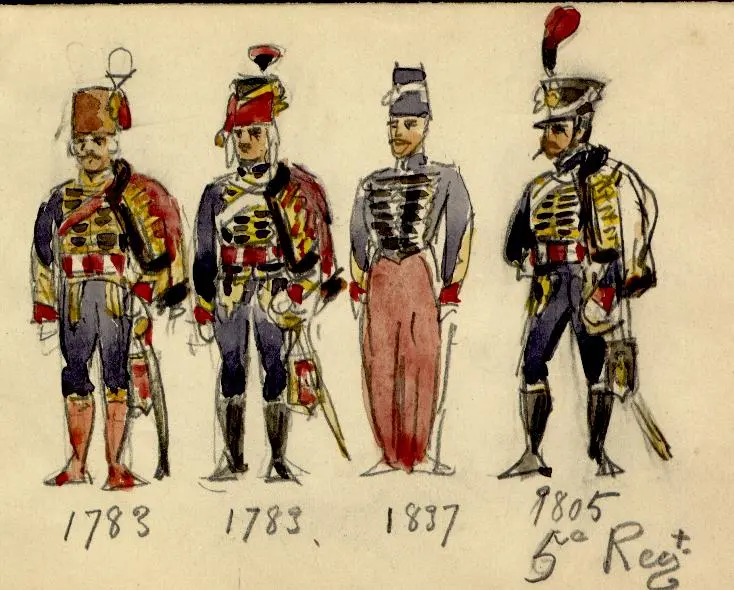 1783 1783. 1897 1805
5ª Regt.